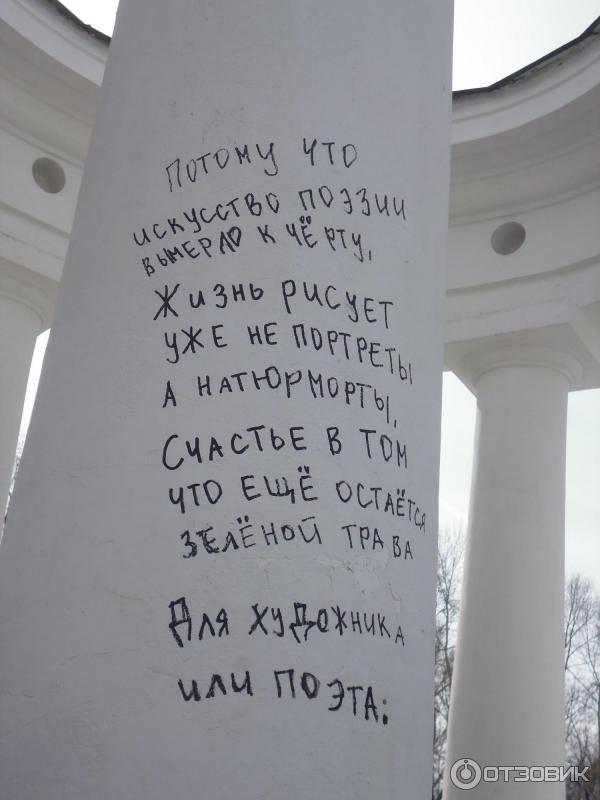 Потому что
искусство поэзии
вымерло к чёрту,
Жизнь рисует
уже не портреты
а натюрморты,
Счастье в том
что ещё остаётся
зелёной трава
Для художника
или поэта:
ОТЗОВИК